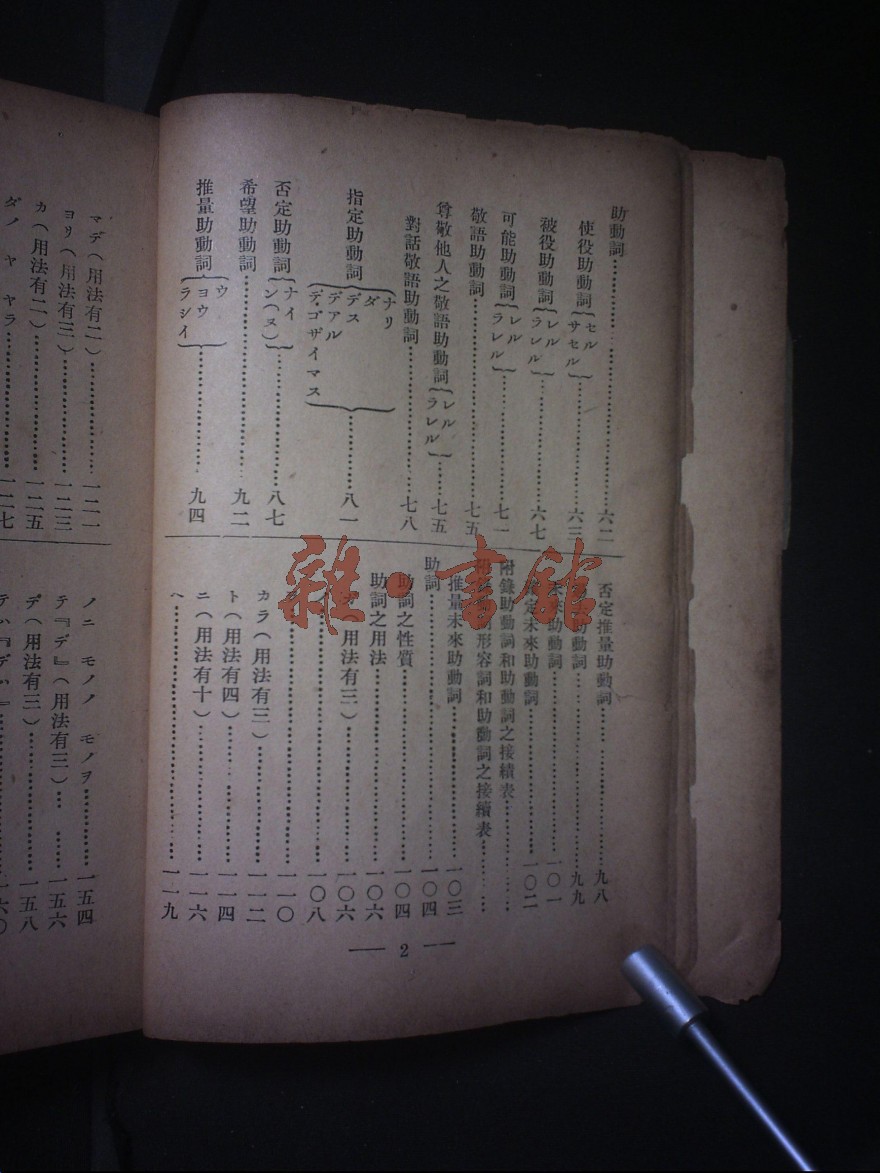 助動詞……六二
使役助動詞{セル サセル}……六三
被役助動詞{レル ラレル}……六七
可能助動詞{レル ラレル}……七一
敬語助動詞……七五
尊敬他人之敬語助動詞{レル ラレル}……七五
對話敬語助動詞……七八
指定助動詞{ナリ ダ デス デアル デ・ゴザイマス}……八一
否定助動詞{ナイ ン(ヌ)}……八七
希望助動詞……九二
推量助動詞{ウ ヨウ ラシイ}……九四
否定推量助動詞……九八
助動詞……九九
助動詞……一〇一
定未來助動詞……一〇二
附錄助動詞和助動詞之接續表……
形容詞和助動詞之接續表……
推量未來助動詞……一〇三
助詞……一〇四
助詞之性質……一〇四
助詞之用法……一〇六
(用法有三)……一〇六
……一〇八
……一一〇
カラ(用法有三)……一一二
ト(用法有四)……一一四
ニ(用法有十)……一一六
ヘ……一一九
2
マデ(用法有二)……一二一
ヨリ(用法有三)……一二三
カ(用法有二)……一二五
ダノ ヤ ヤラ……一二七
ノニ モノノ モノヲ……一五四
テ『デ』(用法有三)……一五六
デ(用法有三)……一五八
テハ『デハ』……一六〇
雜·書館